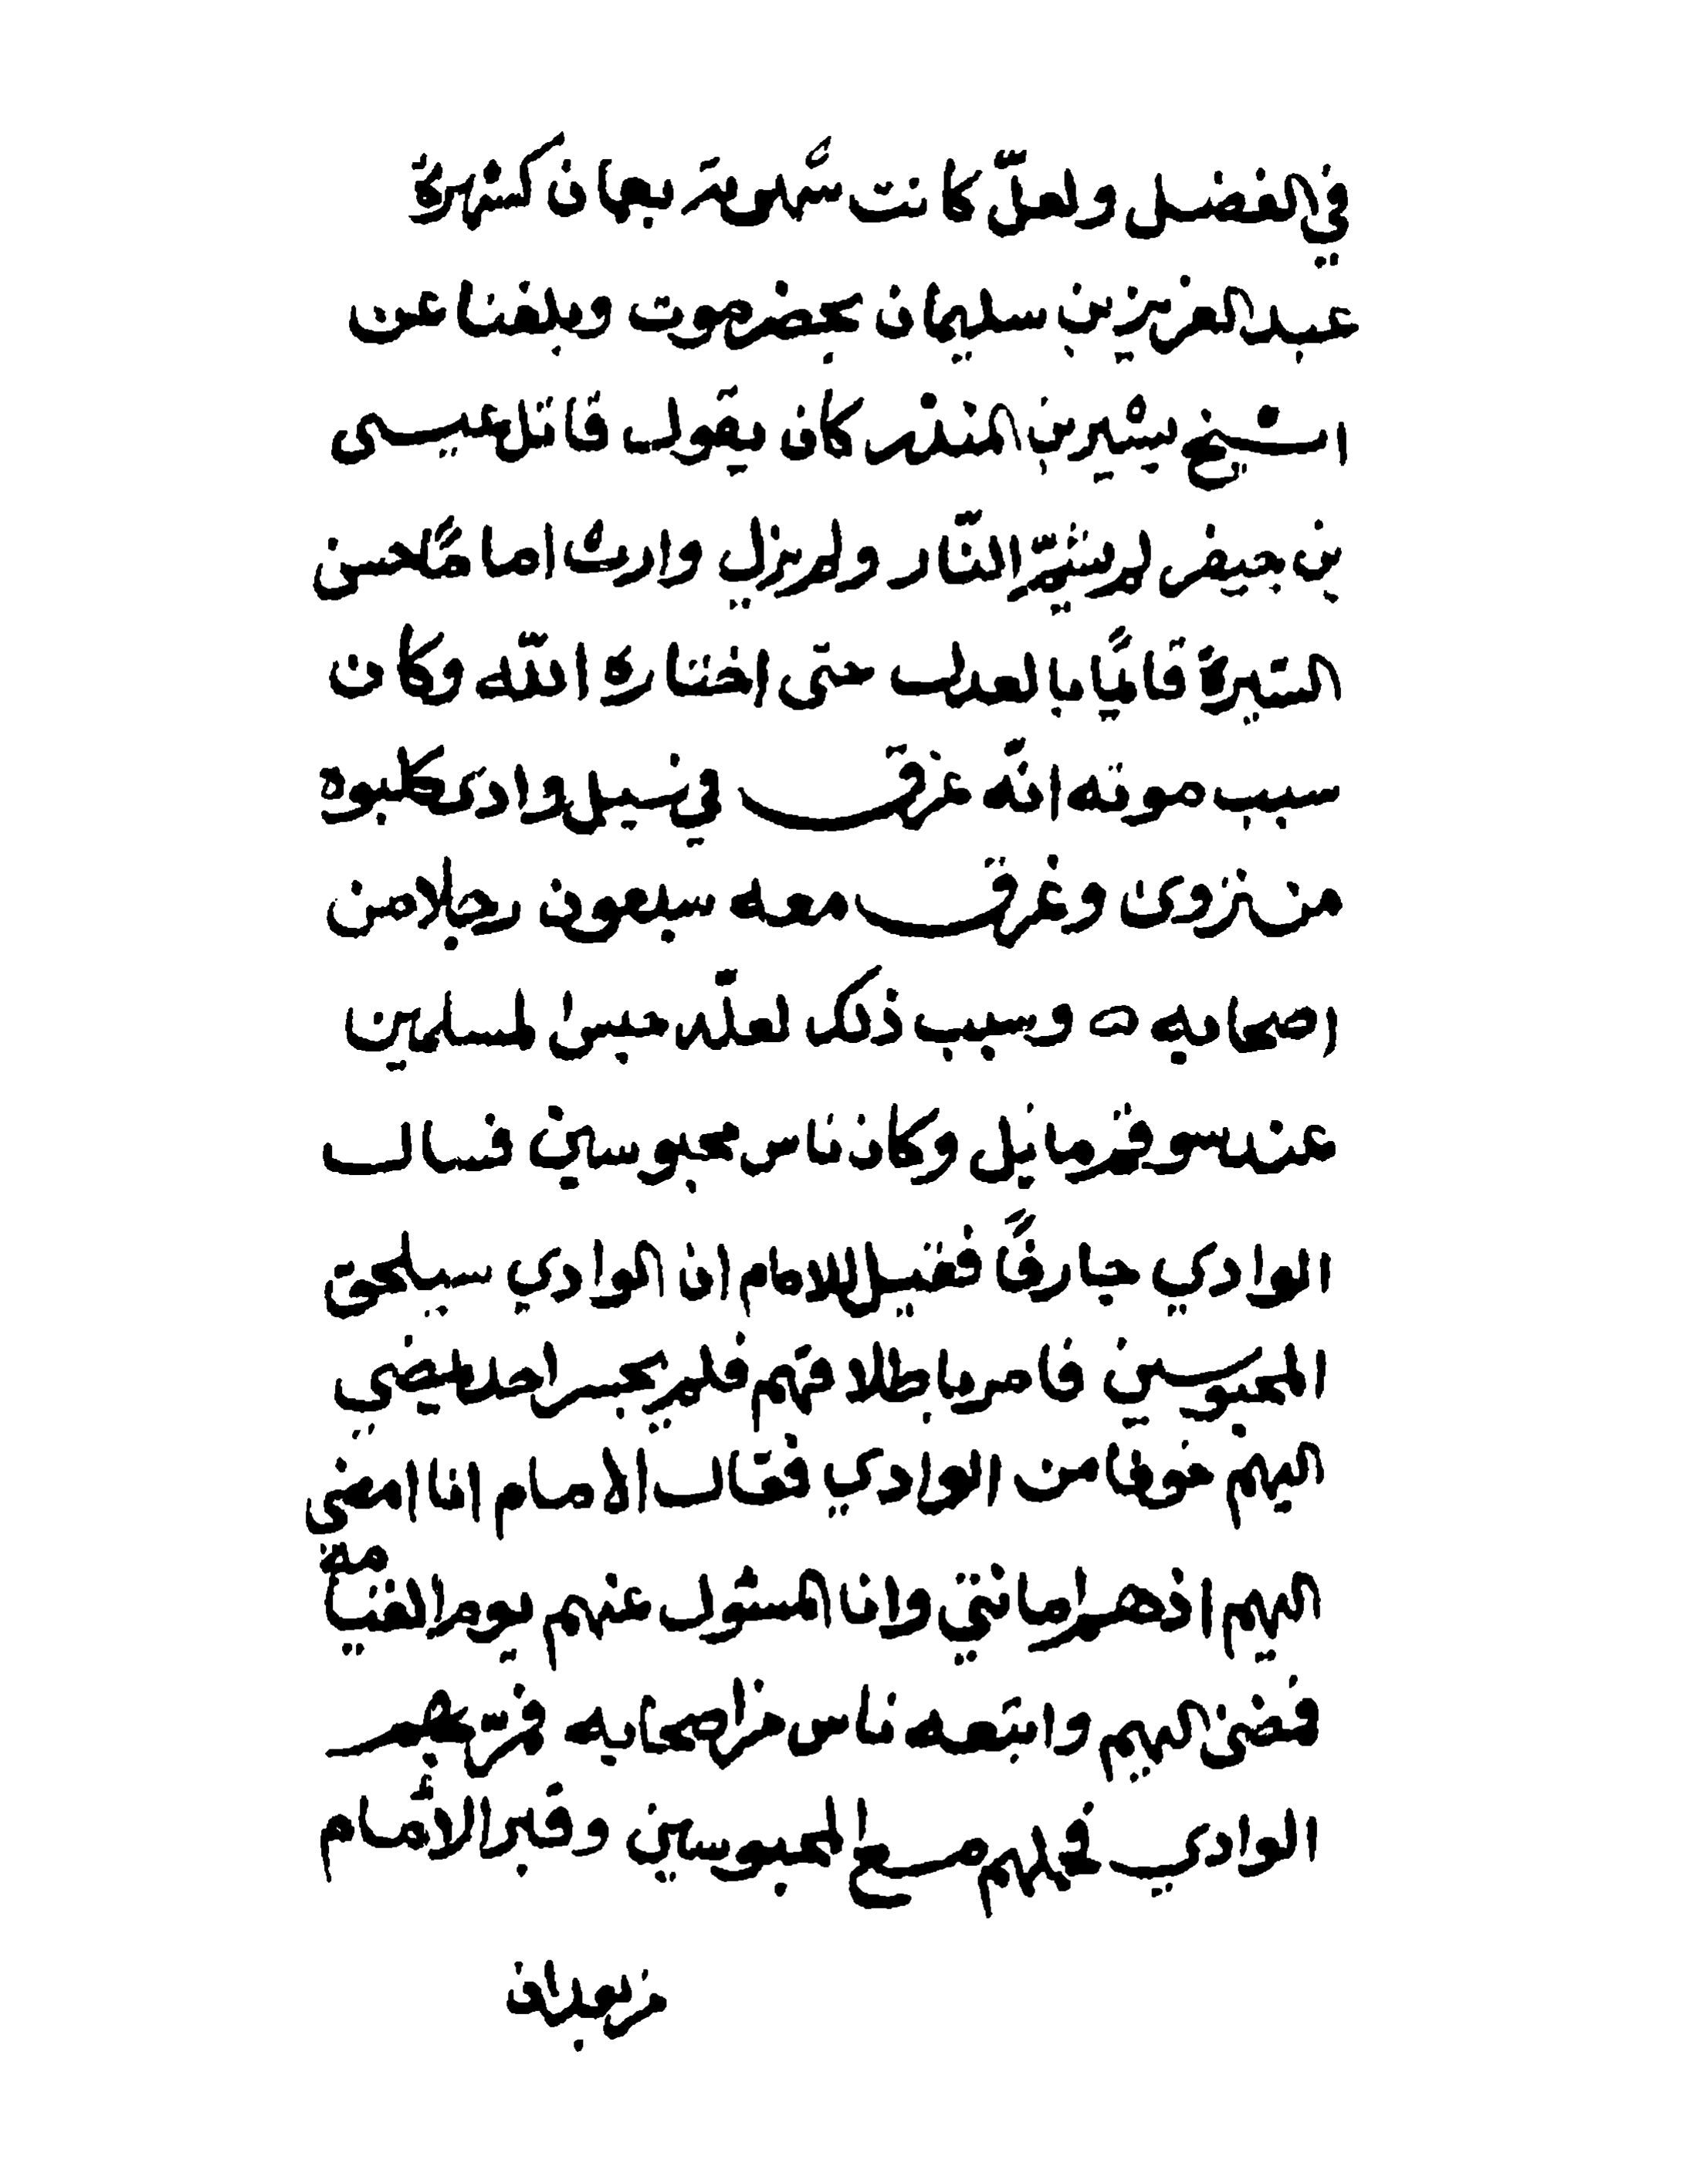 في الفضل ولعلّ كانت شهرته بعمان كشهرة
عبد العزيز بن سليمان بحضرموت وبلغنا عن
الشيخ بشير بن المنذر كان يقول قاتل عيسى
بن جيفر لم يشمّ النّار ولم يزل وارث اماماً حسن
السّيرة قائماً بالعدل حتى اختاره الله وكان
سبب موته انّه غرق في سيل وادى كلبوه
من نزوى وغرق معه سبعون رجلا من
اصحابه ه وسبب ذلك لعلّه حبس المسلمين
عند سوقم مايل وكان ناس محبوسين فسال
الوادي جارفاً فقيل للامام ان الوادي سيلحق
المحبوسين فامر باطلاقهم فلم يجسر احد يمضي
اليهم خوفا من الوادي فقال الامام انا امضى
اليهم اذ هم امانتي وانا المسئول عنهم يوم القيامة
فمضى اليهم واتبعه ناس من اصحابه فمرّ بهم
الوادي فحملهم مع المحبوسين وقبر الامام
من بعد ان